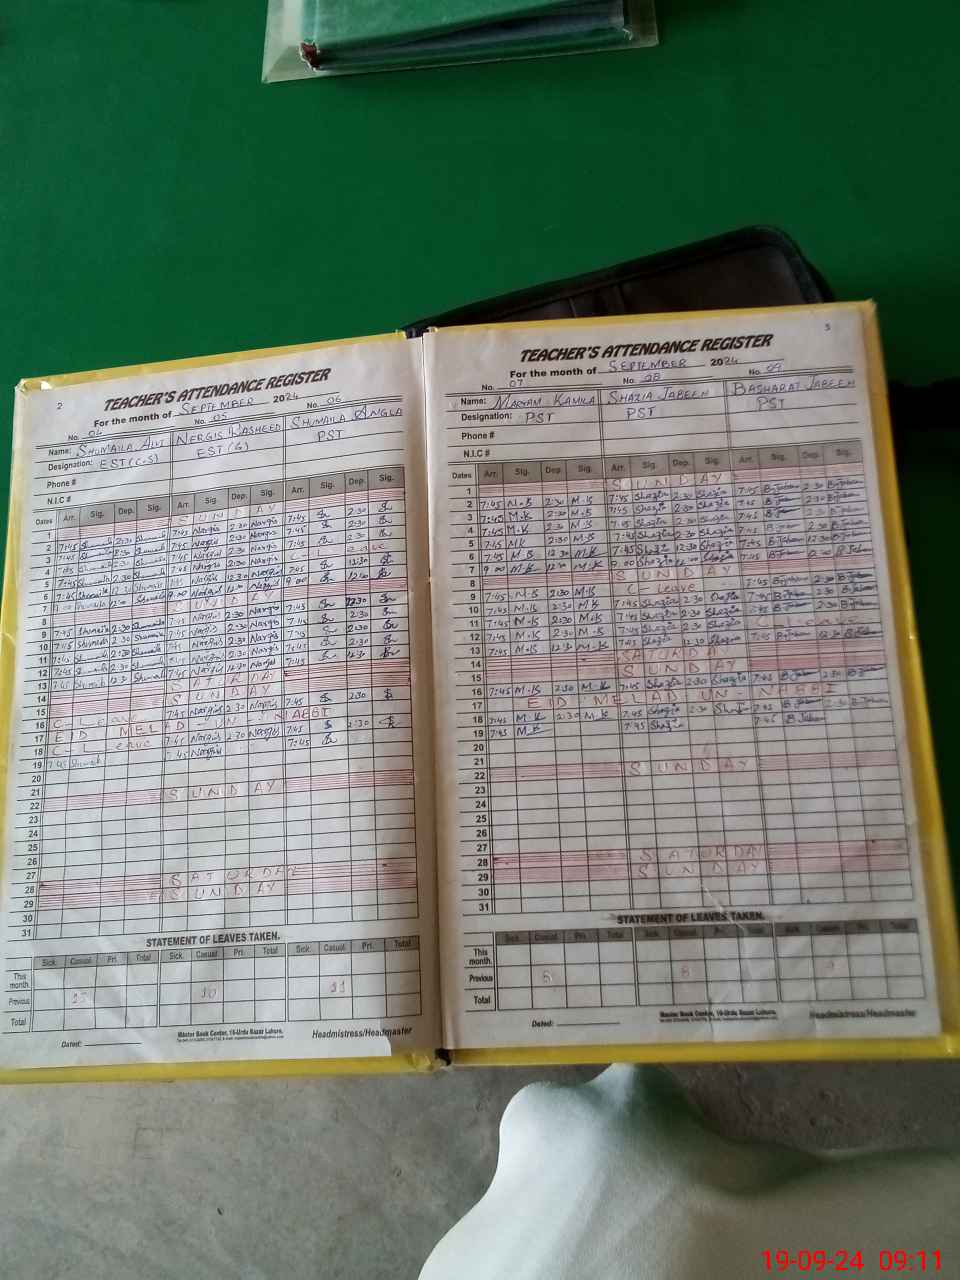 2
TEACHER'S ATTENDANCE REGISTER
For the month of SEPTEMBER 2024
No. 04 No. 05 No. 06
Name: SHUMAILA ALVI NERGIS RASHEED SHUMAILA ANGLA
Designation: EST(C.S) EST(G) PST
Phone #
N.I.C #
Dates Arr. Sig. Dep. Sig. Arr. Sig. Dep. Sig. Arr. Sig. Dep. Sig.
1 SUNDAY
2 7:45 2:30 Shumaila 7:45 Nargis 2:30 Nargis 7:45 2:30
3 7:45 2:30 Shumaila 7:45 Nargis 2:30 Nargis 7:45 2:30
4 7:45 2:30 Shumaila 7:45 Nargis 2:30 Nargis 7:45 2:30
5 7:45 Shumaila 2:30 7:45 Nargis 2:30 Nargis C-Leave
6 7:45 Shumaila 12:30 Shumaila Nargis 12:30 Nargis 7:45
7 9:00 12:00 Shumaila 9:00 Nargis 12:00 Nargis 9:00 12:00
8 SUNDAY
9 7:45 Shumaila 2:30 Shumaila 7:45 Nargis 2:30 Nargis 7:45
10 7:45 Shumaila 2:30 Shumaila 7:45 Nargis 2:30 Nargis 7:45 2:30
11 7:45 2:30 Shumaila Nargis 2:30 Nargis 7:45 2:30
12 7:45 2:30 Shumaila 7:45 Nargis 2:30 Nargis 7:45 2:30
13 7:45 Shumaila 12:30 Shumaila 7:45 Nargis 12:30 Nargis 7:45 12:30
14 SATURDAY
15 SUNDAY
16 C-Leave 7:45 Nargis 2:30 Nargis 7:45 2:30
17 EID MELAD-UN-NABBI
18 C-Leave 7:45 Nargis 2:30 Nargis 7:45 2:30
19 7:45 Shumaila 7:45 Nargis 7:45
20
21
22 SUNDAY
23
24
25
26
27
28 SATURDAY
29 SUNDAY
30
31
STATEMENT OF LEAVES TAKEN.
Sick. Casual Pri. Total Sick. Casual Pri. Total Sick. Casual Pri. Total
This month
Previous 10 11
Total
Dated: Master Book Center, 19-Urdu Bazar Lahore. Headmistress/Headmaster
TEACHER'S ATTENDANCE REGISTER
For the month of SEPTEMBER 2024
No. 07 No. 08 No. 09
Name: MARYAM KAMILA SHAZIA JABEEN BASHARAT JABEEN
Designation: PST PST PST
Phone #
N.I.C #
Dates Arr. Sig. Dep. Sig. Arr. Sig. Dep. Sig. Arr. Sig. Dep. Sig.
1 SUNDAY
2 7:45 M.K 2:30 M.K 7:45 Shazia 2:30 Shazia 7:45 B.Jabeen 2:30 B.Jabeen
3 7:45 M.K 2:30 M.K 7:45 Shazia 2:30 Shazia 7:45 B.Jabeen 2:30 B.Jabeen
4 7:45 M.K 2:30 M.K 7:45 Shazia 2:30 Shazia 7:45 B.Jabeen 2:30 B.Jabeen
5 7:45 MK 2:30 M.K 7:45 Shazia 2:30 Shazia 7:45 B.Jabeen 2:30 B.Jabeen
6 7:45 M.K 12:30 M.K 7:45 Shazia 12:30 Shazia 7:45 B.Jabeen 12:30 B.Jabeen
7 9:00 M.K 12:00 M.K 9:00 Shazia 12:00 Shazia B.Jabeen 12:00 B.Jabeen
8 SUNDAY
9 7:45 M.K 2:30 M.K C-Leave 7:45 B.Jabeen 2:30 B.Jabeen
10 7:45 M.K 2:30 M.K 7:45 Shazia 2:30 Shazia 7:45 B.Jabeen 2:30 B.Jabeen
11 7:45 M.K 2:30 M.K 7:45 Shazia 2:30 Shazia 7:45 B.Jabeen 2:30 B.Jabeen
12 7:45 M.K 2:30 M.K 7:45 Shazia 2:30 Shazia C-Leave
13 7:45 M.K 12:30 M.K 7:45 Shazia 12:30 Shazia 7:45 B.Jabeen 12:30 B.Jabeen
14 SATURDAY
15 SUNDAY
16 7:45 M.K 2:30 M.K 7:45 Shazia 2:30 Shazia 7:45 B.Jabeen 2:30 B.Jabeen
17 EID MELAD UN NABBI
18 7:45 M.K 2:30 M.K 7:45 Shazia 2:30 Shazia 7:45 B.Jabeen 2:30 B.Jabeen
19 7:45 M.K 7:45 Shazia 7:45 B.Jabeen
20
21
22 SUNDAY
23
24
25
26
27
28 SATURDAY
29 SUNDAY
30
31
STATEMENT OF LEAVES TAKEN.
Sick. Casual Pri. Total Sick. Casual Pri. Total Sick. Casual Pri. Total
This month
Previous
Total
Dated: Master Book Center, 19-Urdu Bazar Lahore. Headmistress/Headmaster
19-09-24 09:11